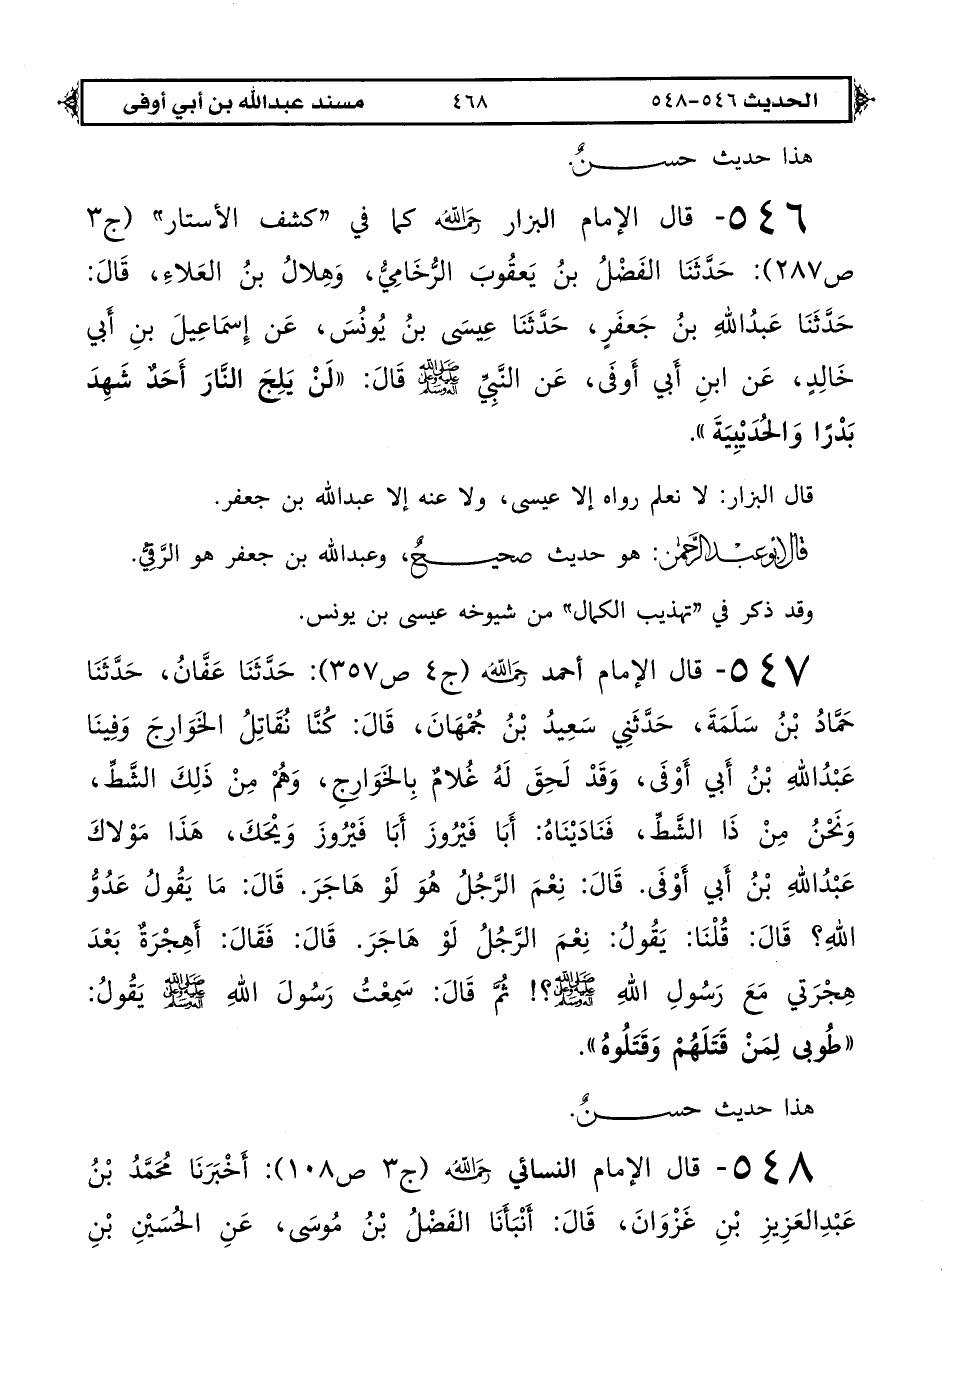 الحديث ٥٤٦-٥٤٨ ٤٦٨ مسند عبدالله بن أبي أوفى
هذا حديث حســـنٌ.
٥٤٦- قال الإمام البزار رَحِمَهُ اللهُ كما في «كشف الأستار» (ج٣
ص٢٨٧): حَدَّثَنَا الفَضْلُ بنُ يَعقُوبَ الرُّخَامِيُّ، وَهِلالُ بنُ العَلاءِ، قَالَ:
حَدَّثَنَا عَبدُاللهِ بنُ جَعفَرٍ، حَدَّثَنَا عِيسَى بنُ يُونُسَ، عَن إِسمَاعِيلَ بنِ أَبي
خَالِدٍ، عَن ابنِ أَبي أَوفَى، عَن النَّبِيِّ ﷺ قَالَ: «لَنْ يَلِجَ النَّارَ أَحَدٌ شَهِدَ
بَدْرًا وَالحُدَيْبِيَةَ».
قال البزار: لا نعلم رواه إلا عيسى، ولا عنه إلا عبدالله بن جعفر.
قال أبو عبدالرحمن: هو حديث صحيـــحٌ، وعبدالله بن جعفر هو الرَّقِّيُّ.
وقد ذكر في «تهذيب الكمال» من شيوخه عيسى بن يونس.
٥٤٧- قال الإمام أحمد رَحِمَهُ اللهُ (ج٤ ص٣٥٧): حَدَّثَنَا عَفَّانُ، حَدَّثَنَا
حَمَّادُ بْنُ سَلَمَةَ، حَدَّثَنِي سَعِيدُ بْنُ جُمْهَانَ، قَالَ: كُنَّا نُقَاتِلُ الخَوَارِجَ وَفِينَا
عَبْدُاللهِ بْنُ أَبي أَوْفَى، وَقَدْ لَحِقَ لَهُ غُلامٌ بِالخَوَارِجِ، وَهُمْ مِنْ ذَلِكَ الشَّطِّ،
وَنَحْنُ مِنْ ذَا الشَّطِّ، فَنَادَيْنَاهُ: أَبَا فَيْرُوزَ أَبَا فَيْرُوزَ وَيْحَكَ، هَذَا مَوْلاكَ
عَبْدُاللهِ بْنُ أَبي أَوْفَى. قَالَ: نِعْمَ الرَّجُلُ هُوَ لَوْ هَاجَرَ. قَالَ: مَا يَقُولُ عَدُوُّ
اللهِ؟ قَالَ: قُلْنَا: يَقُولُ: نِعْمَ الرَّجُلُ لَوْ هَاجَرَ. قَالَ: فَقَالَ: أَهِجْرَةٌ بَعْدَ
هِجْرَتي مَعَ رَسُولِ اللهِ ﷺ؟! ثُمَّ قَالَ: سَمِعْتُ رَسُولَ اللهِ ﷺ يَقُولُ:
«طُوبى لِمَنْ قَتَلَهُمْ وَقَتَلُوهُ».
هذا حديث حســـنٌ.
٥٤٨- قال الإمام النسائي رَحِمَهُ اللهُ (ج٣ ص١٠٨): أَخْبَرَنَا مُحَمَّدُ بْنُ
عَبْدِالعَزِيزِ بْنِ غَزْوَانَ، قَالَ: أَنْبَأَنَا الفَضْلُ بْنُ مُوسَى، عَنِ الحُسَيْنِ بْنِ